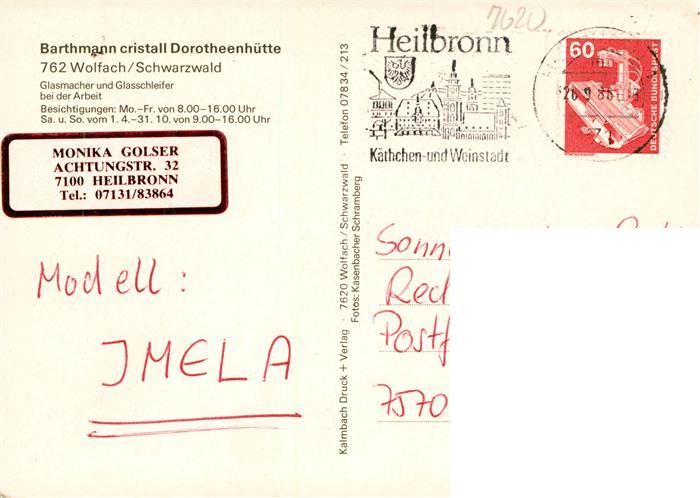 Barthmann cristall Dorotheenhütte
762 Wolfach/Schwarzwald
Glasmacher und Glasschleifer
bei der Arbeit
Besichtigungen: Mo.–Fr. von 8.00–16.00 Uhr
Sa. u. So. vom 1. 4.–31. 10. von 9.00–16.00 Uhr
MONIKA GOLSER
ACHTUNGSTR. 32
7100 HEILBRONN
Tel.: 07131/83864
Modell:
JMELA
Kalmbach Druck + Verlag · 7620 Wolfach/Schwarzwald · Telefon 07834/213
Fotos: Kasenbacher Schramberg
7620
Heilbronn
Käthchen-und Weinstadt
60
DEUTSCHE BUNDESPOST
Sonn
Red
Postf
7570